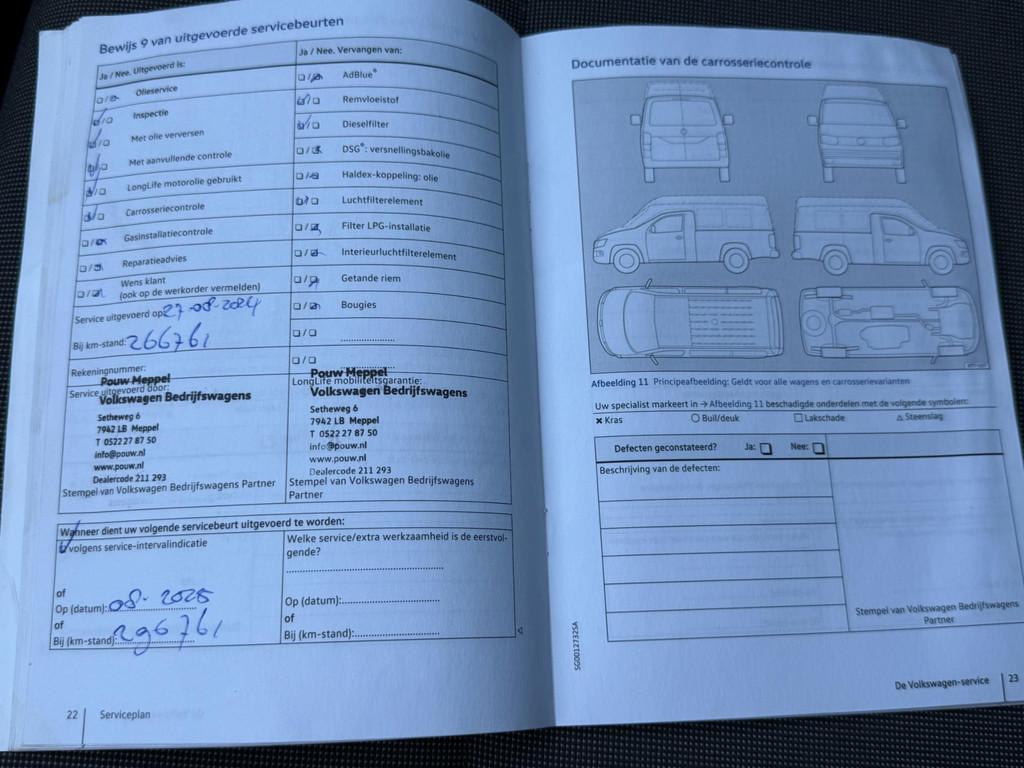 Bewijs 9 van uitgevoerde servicebeurten
Ja / Nee. Uitgevoerd is:
Olieservice
Inspectie
Met olie verversen
Met aanvullende controle
LongLife motorolie gebruikt
Carrosseriecontrole
Gasinstallatiecontrole
Reparatieadvies
Wens klant
(ook op de werkorder vermelden)
Service uitgevoerd op: 27-08-2024
Bij km-stand: 266761
Rekeningnummer:
Service uitgevoerd door:
Pouw Meppel
Volkswagen Bedrijfswagens
Setheweg 6
7942 LB Meppel
T 0522 27 87 50
info@pouw.nl
www.pouw.nl
Dealercode 211 293
Stempel van Volkswagen Bedrijfswagens Partner
Ja / Nee. Vervangen van:
AdBlue®
Remvloeistof
Dieselfilter
DSG®: versnellingsbakolie
Haldex-koppeling: olie
Luchtfilterelement
Filter LPG-installatie
Interieurluchtfilterelement
Getande riem
Bougies
LongLife mobiliteitsgarantie:
Pouw Meppel
Volkswagen Bedrijfswagens
Setheweg 6
7942 LB Meppel
T 0522 27 87 50
info@pouw.nl
www.pouw.nl
Dealercode 211 293
Stempel van Volkswagen Bedrijfswagens
Partner
Wanneer dient uw volgende servicebeurt uitgevoerd te worden:
volgens service-intervalindicatie
of
Op (datum): 08-2025
of
Bij (km-stand): 296761
Welke service/extra werkzaamheid is de eerstvol-
gende?
Op (datum):
of
Bij (km-stand):
22 Serviceplan
Documentatie van de carrosseriecontrole
Afbeelding 11 Principeafbeelding: Geldt voor alle wagens en carrosserievarianten
Uw specialist markeert in → Afbeelding 11 beschadigde onderdelen met de volgende symbolen:
× Kras ○ Buil/deuk □ Lakschade △ Steenslag
Defecten geconstateerd? Ja: □ Nee: □
Beschrijving van de defecten:
Stempel van Volkswagen Bedrijfswagens
Partner
SG00127325A
De Volkswagen-service 23